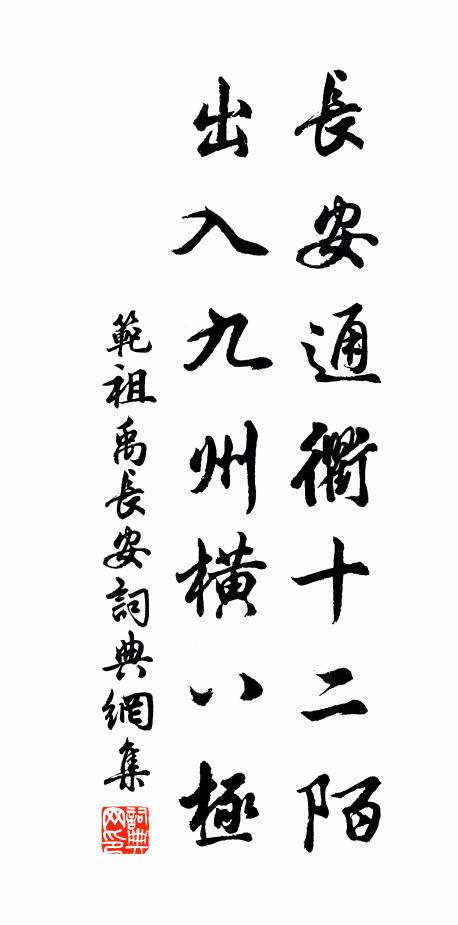 長安通衢十二陌
出入九州橫八極
範祖禹長安詞典網集
詞典网印